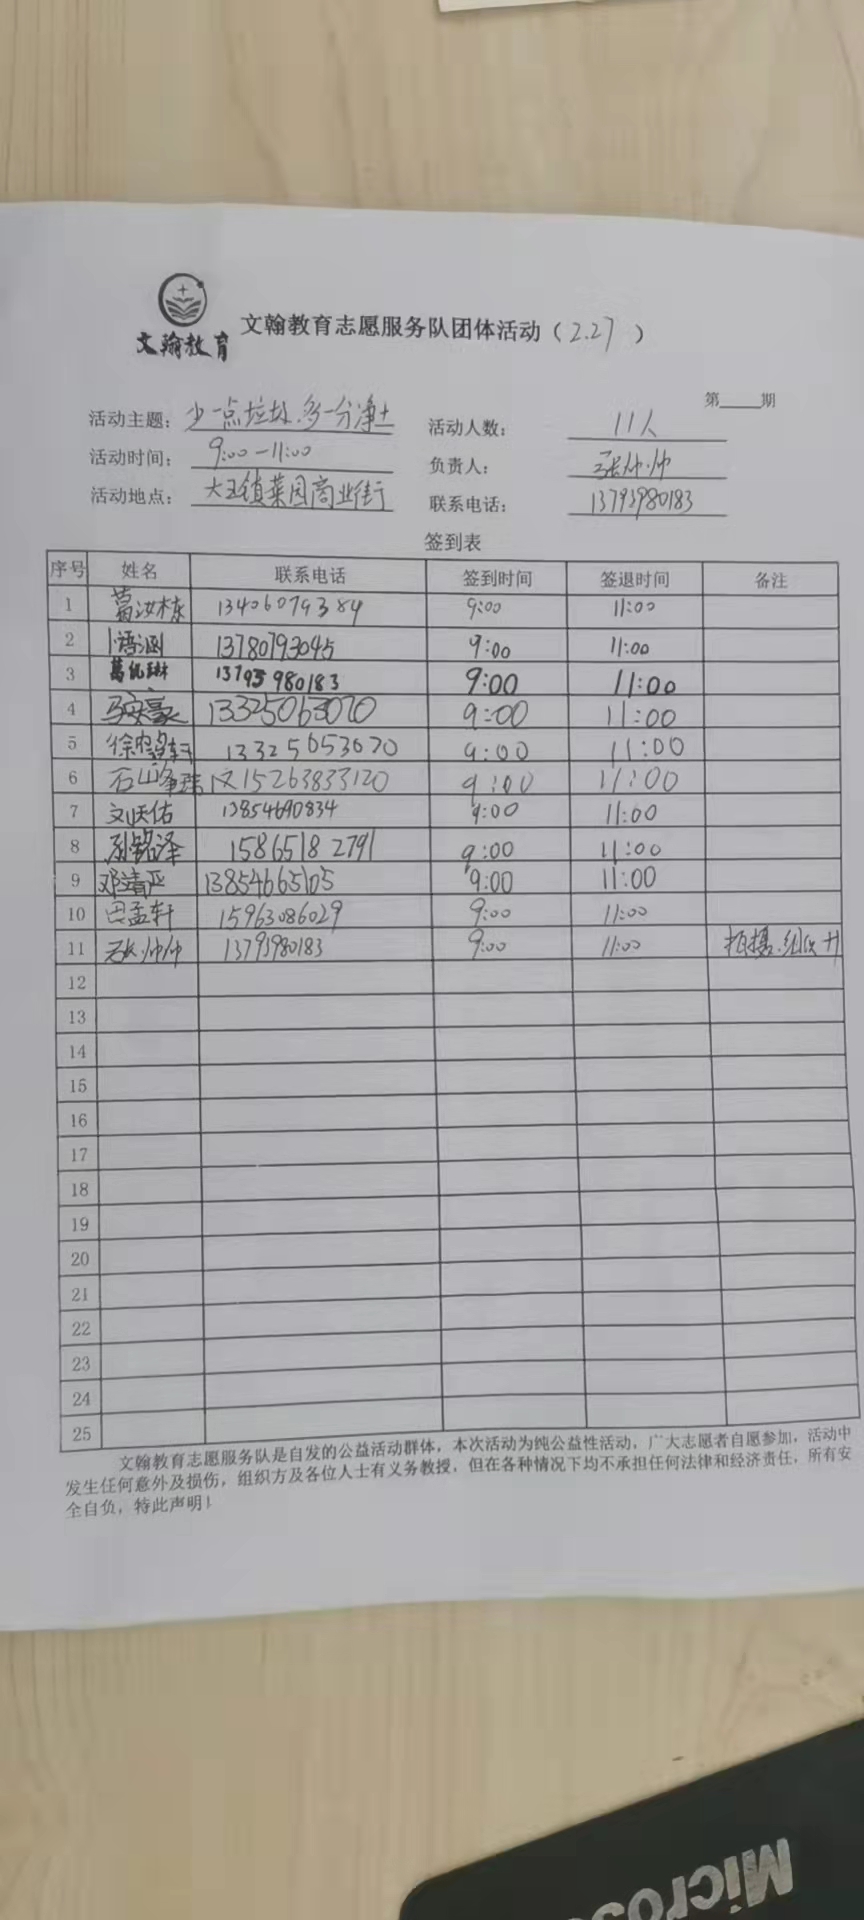 文翰教育
文翰教育志愿服务队团体活动（2.27）
第____期
活动主题：少一点垃圾.多一分净土 活动人数：11人
活动时间：9:00-11:00 负责人：张帅帅
活动地点：大王镇菜园商业街 联系电话：13793980183
签到表
序号 姓名 联系电话 签到时间 签退时间 备注
1 葛汝栋 13406079384 9:00 11:00
2 语涵 13780793045 9:00 11:00
3 葛 琳 13793980183 9:00 11:00
4 豪 13325063070 9:00 11:00
5 徐 轩 13325053070 9:00 11:00
6 石 15263833120 9:00 11:00
7 刘天佑 13854690834 9:00 11:00
8 铭泽 15865182791 9:00 11:00
9 邓靖亚 13854665105 9:00 11:00
10 田孟轩 15963086029 9:00 11:00
11 张帅帅 13793980183 9:00 11:00 拍摄.组织
12
13
14
15
16
17
18
19
20
21
22
23
24
25
文翰教育志愿服务队是自发的公益活动群体，本次活动为纯公益性活动，广大志愿者自愿参加，活动中
发生任何意外及损伤，组织方及各位人士有义务教授，但在各种情况下均不承担任何法律和经济责任，所有安
全自负，特此声明！